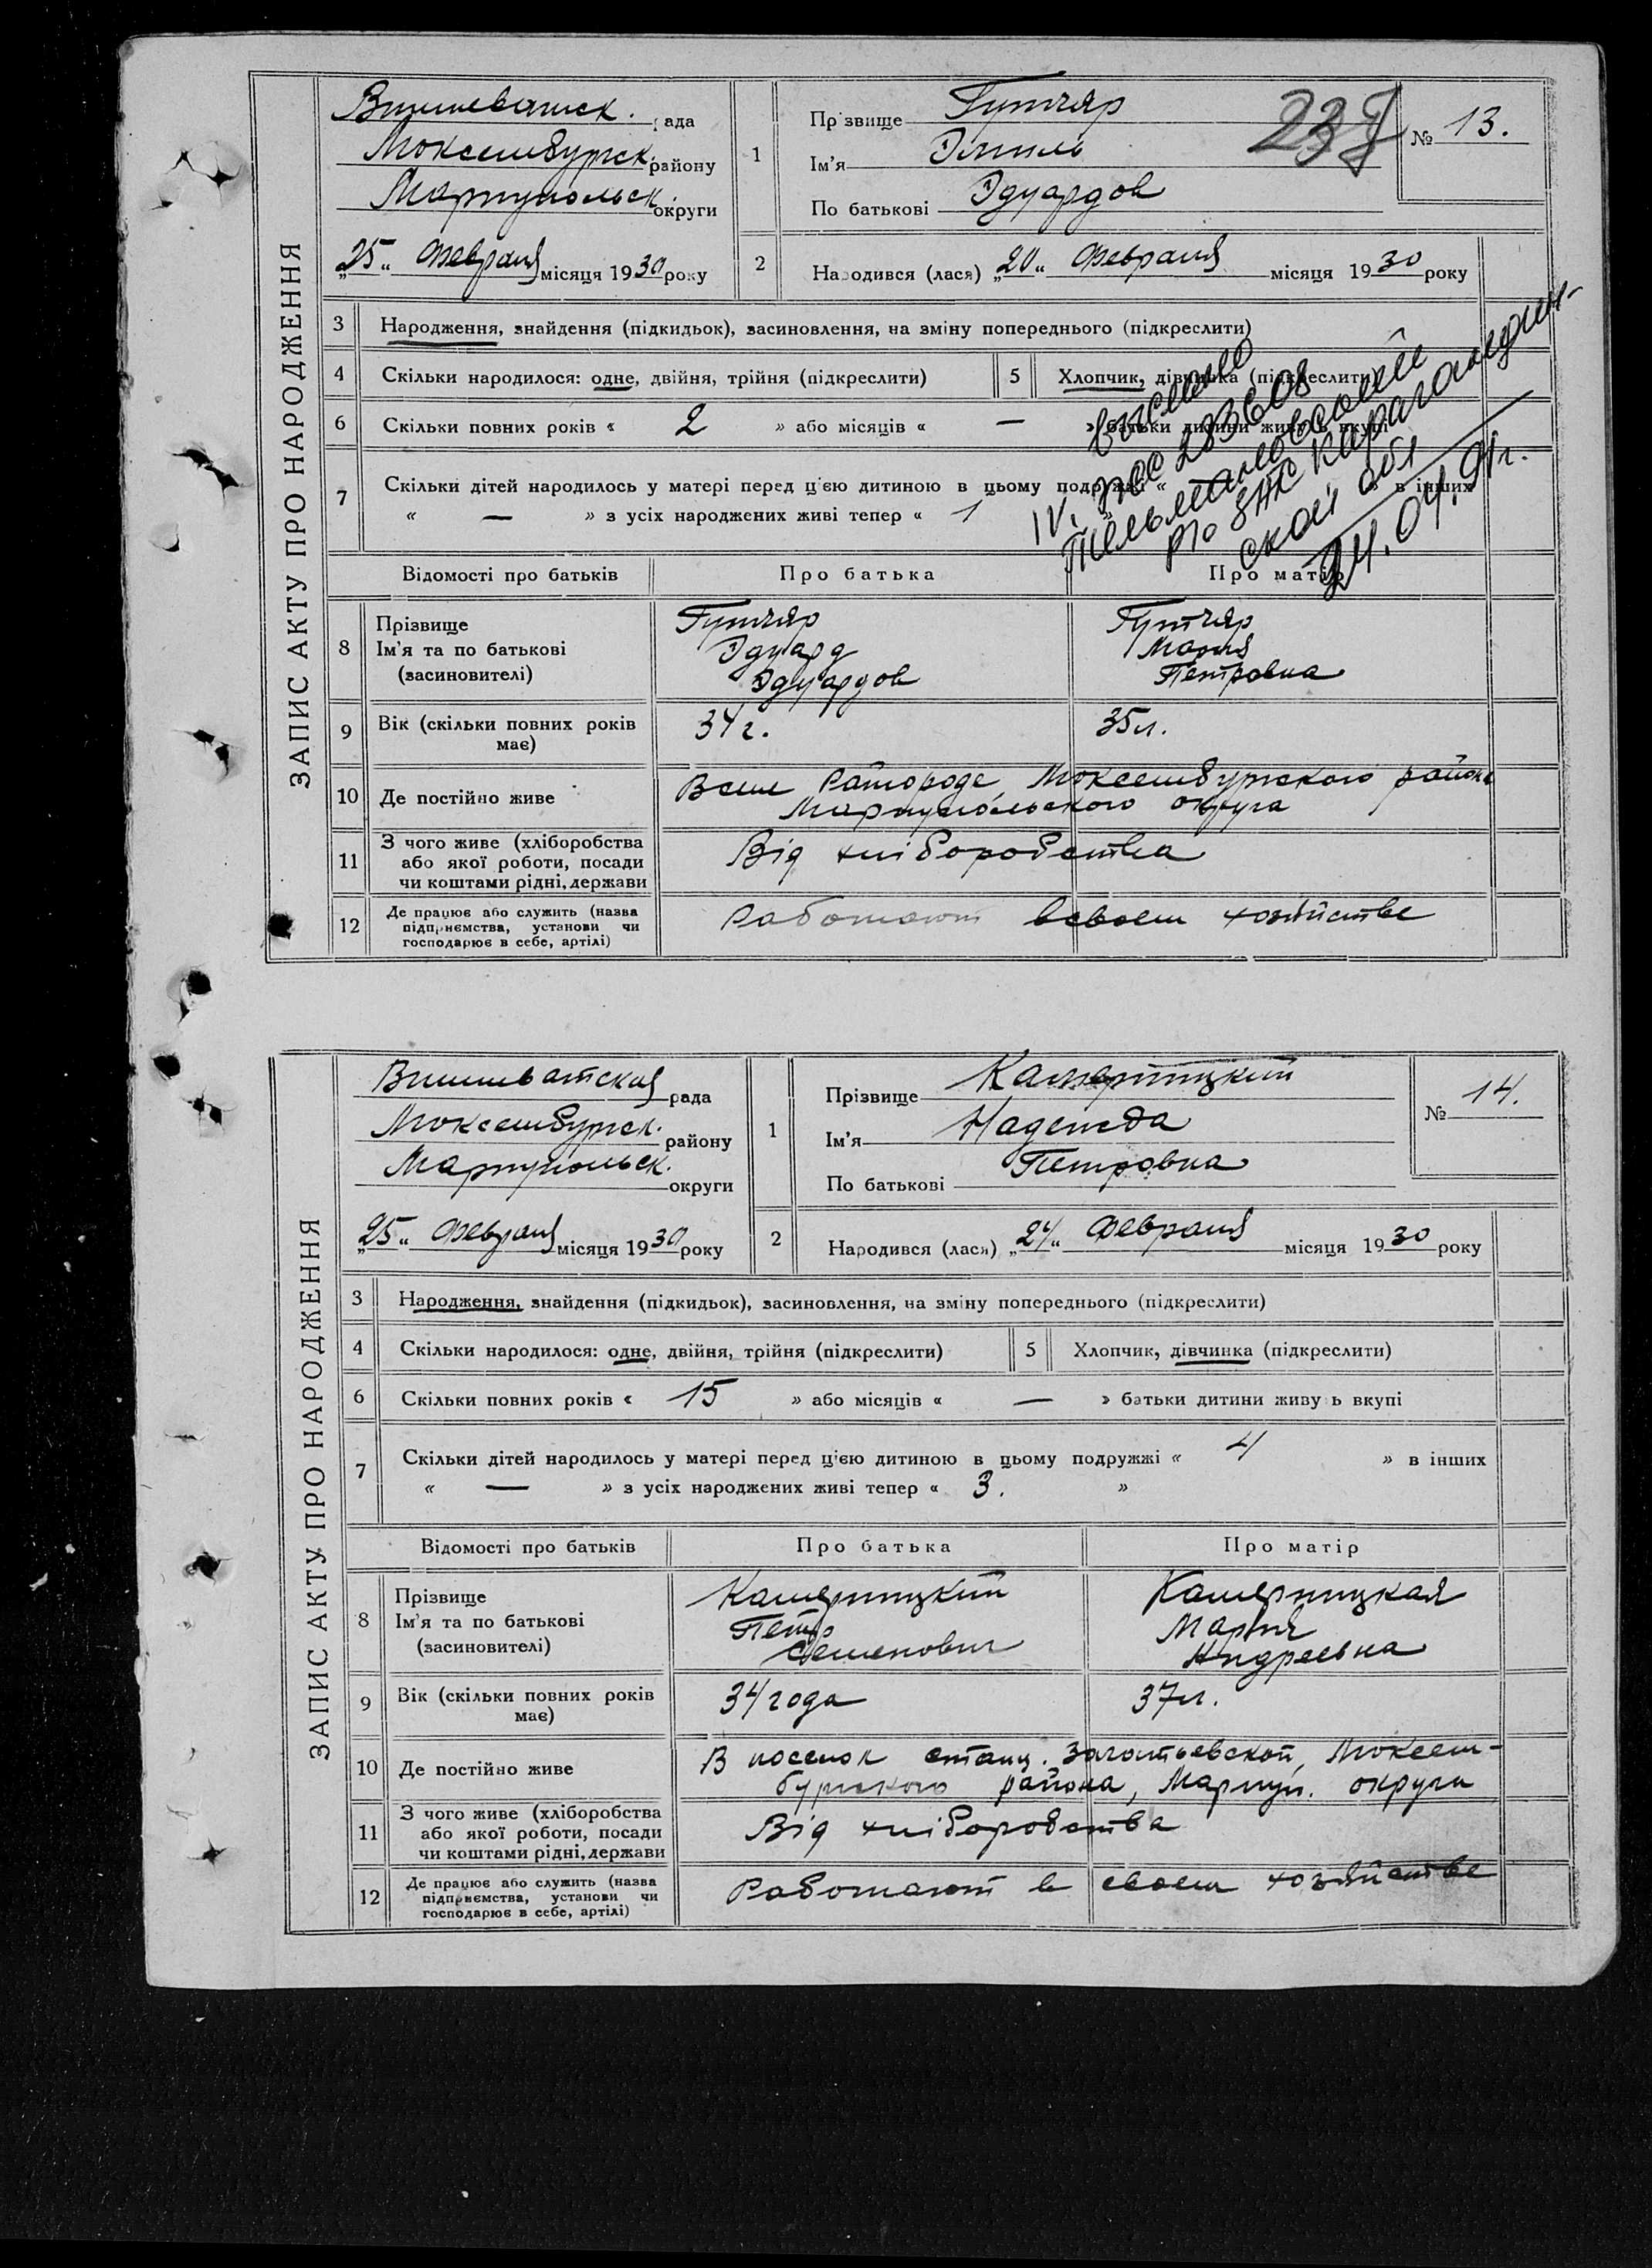 ЗАПИС АКТУ ПРО НАРОДЖЕННЯ
Вишеватск. рада
Люксембургск. району
Мариупольск. округи
„25“ Февраля місяця 1930 року
1 Прізвище Гутчяр
Ім'я Эмиль
По батькові Эдуардов
237
№ 13.
2 Народився (лася) „20“ Февраля місяця 1930 року
3 Народження, знайдення (підкидьок), засиновлення, на зміну попереднього (підкреслити)
4 Скільки народилося: одне, двійня, трійня (підкреслити) 5 Хлопчик, дівчинка (підкреслити)
6 Скільки повних років « 2 » або місяців « — » батьки дитини живуть вкупі
7 Скільки дітей народилось у матері перед цією дитиною в цьому подружжі « » в інших
« — » з усіх народжених живі тепер « 1
выслано
IV. 283608
Тельмановский
р/о ЗАГС Карагандин-
ской обл
24.04.91г.
Відомості про батьків Про батька Про матір
8 Прізвище Гутчяр Гутчяр
Ім'я та по батькові Эдуард Мария
(засиновителі) Эдуардов Петровна
9 Вік (скільки повних років має) 34 г. 35 л.
10 Де постійно живе В сел Райгороде, Люксембургского района
Мариупольского округа
11 З чого живе (хліборобства або якої роботи, посади чи коштами рідні, держави Від хліборобства
12 Де працює або служить (назва підприємства, установи чи господарює в себе, артілі) Работают в своем хозяйстве
ЗАПИС АКТУ ПРО НАРОДЖЕННЯ
Вишеватская рада
Люксембургск. району
Мариупольск. округи
„25“ Февраля місяця 1930 року
1 Прізвище Камерицкий
Ім'я Надежда
По батькові Петровна
№ 14.
2 Народився (лася) „24“ Февраля місяця 1930 року
3 Народження, знайдення (підкидьок), засиновлення, на зміну попереднього (підкреслити)
4 Скільки народилося: одне, двійня, трійня (підкреслити) 5 Хлопчик, дівчинка (підкреслити)
6 Скільки повних років « 15 » або місяців « — » батьки дитини живуть вкупі
7 Скільки дітей народилось у матері перед цією дитиною в цьому подружжі « 4 » в інших
« — » з усіх народжених живі тепер « 3. »
Відомості про батьків Про батька Про матір
8 Прізвище Камерицкий Камерицкая
Ім'я та по батькові Петр Мария
(засиновителі) Семенович Андреевна
9 Вік (скільки повних років має) 34 года 37 л.
10 Де постійно живе В поселок станц. Люксем-
бургского района, Мариуп. округа
11 З чого живе (хліборобства або якої роботи, посади чи коштами рідні, держави Від хліборобства
12 Де працює або служить (назва підприємства, установи чи господарює в себе, артілі) Работают в своем хозяйстве